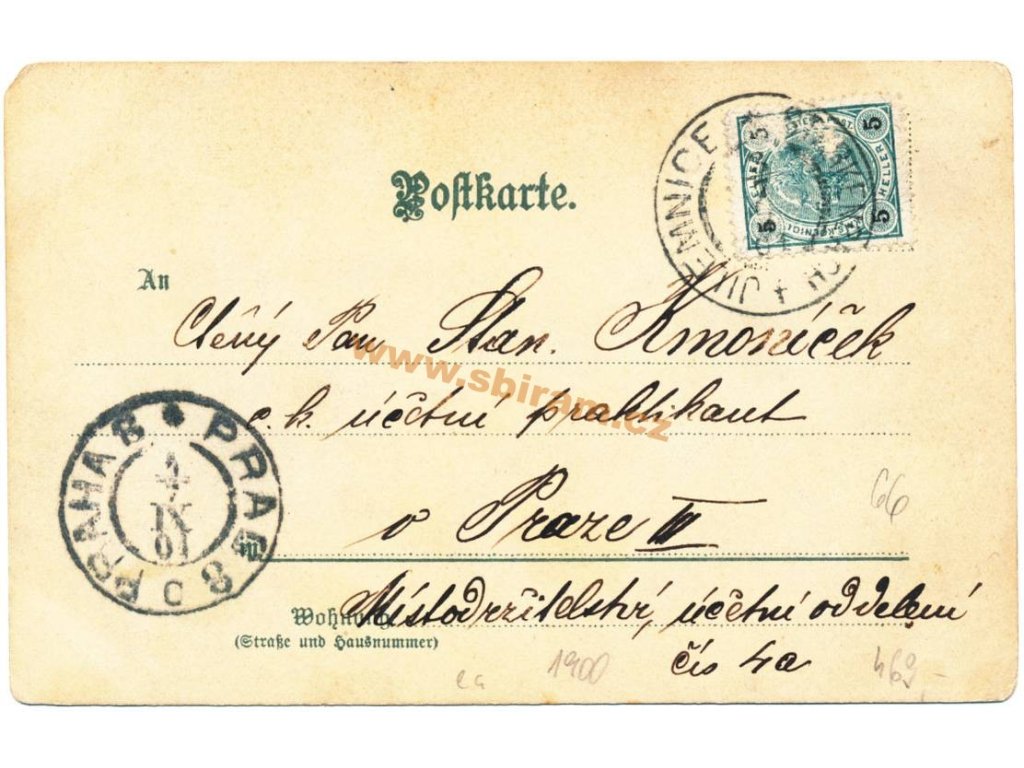 Postkarte.
An
Ctěný Pan Stan. Kmoníček
www.sbiram.cz
c.k. účetní praktikant
v Praze III
Místodržitelství, účetní oddělení
Wohnung
(Straße und Hausnummer)
čís 4a
1900
469,-
66
PRAG 8 PRAHA 8
4
IX
01
C
JILEMNICE
5 5
5 5
HELLER